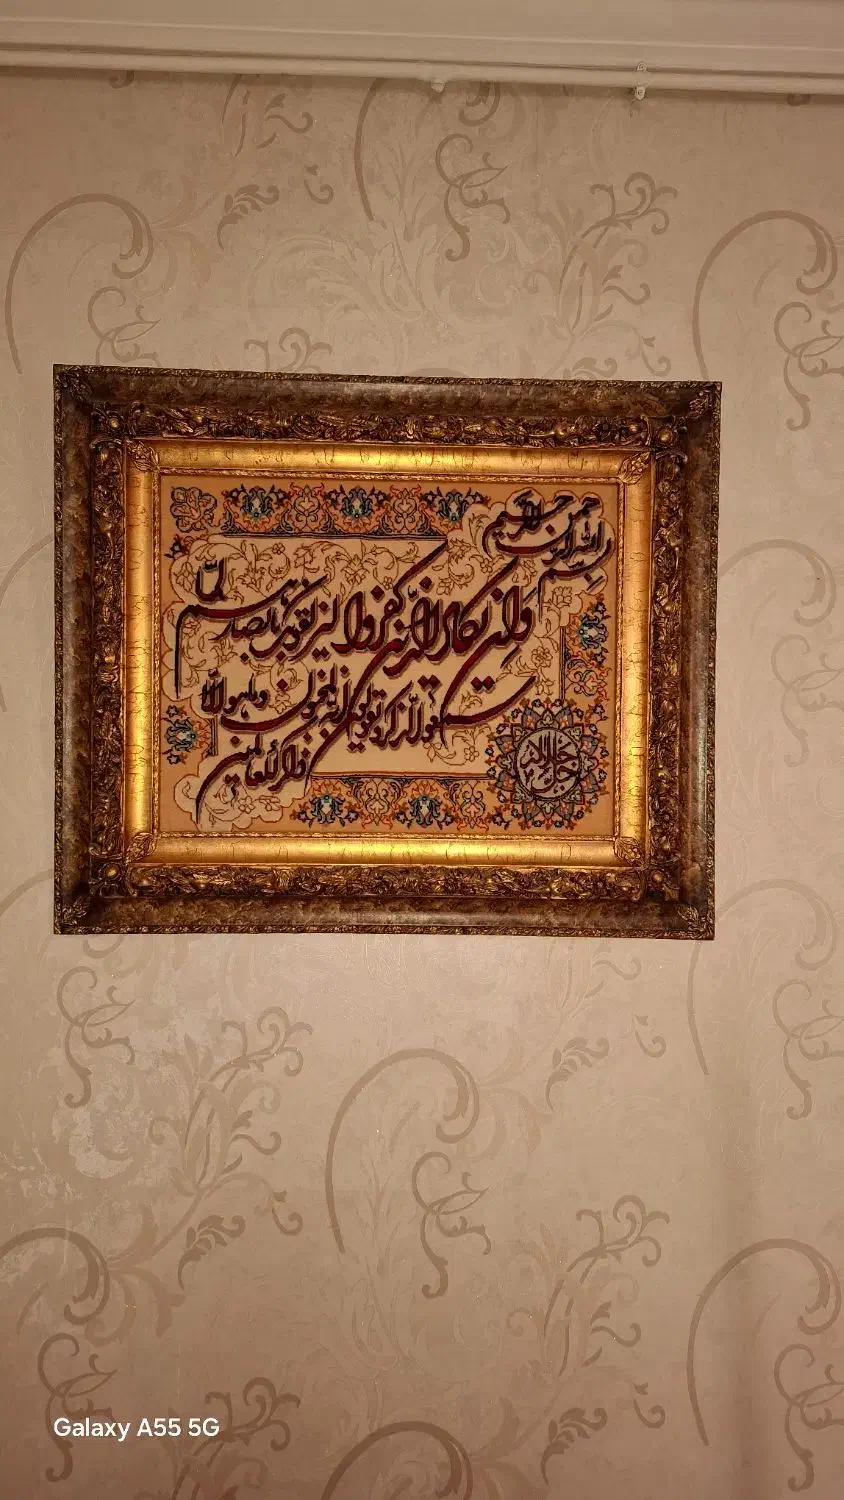 بسم الله الرحمن الرحیم
وان یکاد الذین کفروا لیزلقونک بابصارهم لما
سمعوا الذکر و یقولون انه لمجنون و ما هو الا
ذکر للعالمین
جل جلاله
Galaxy A55 5G